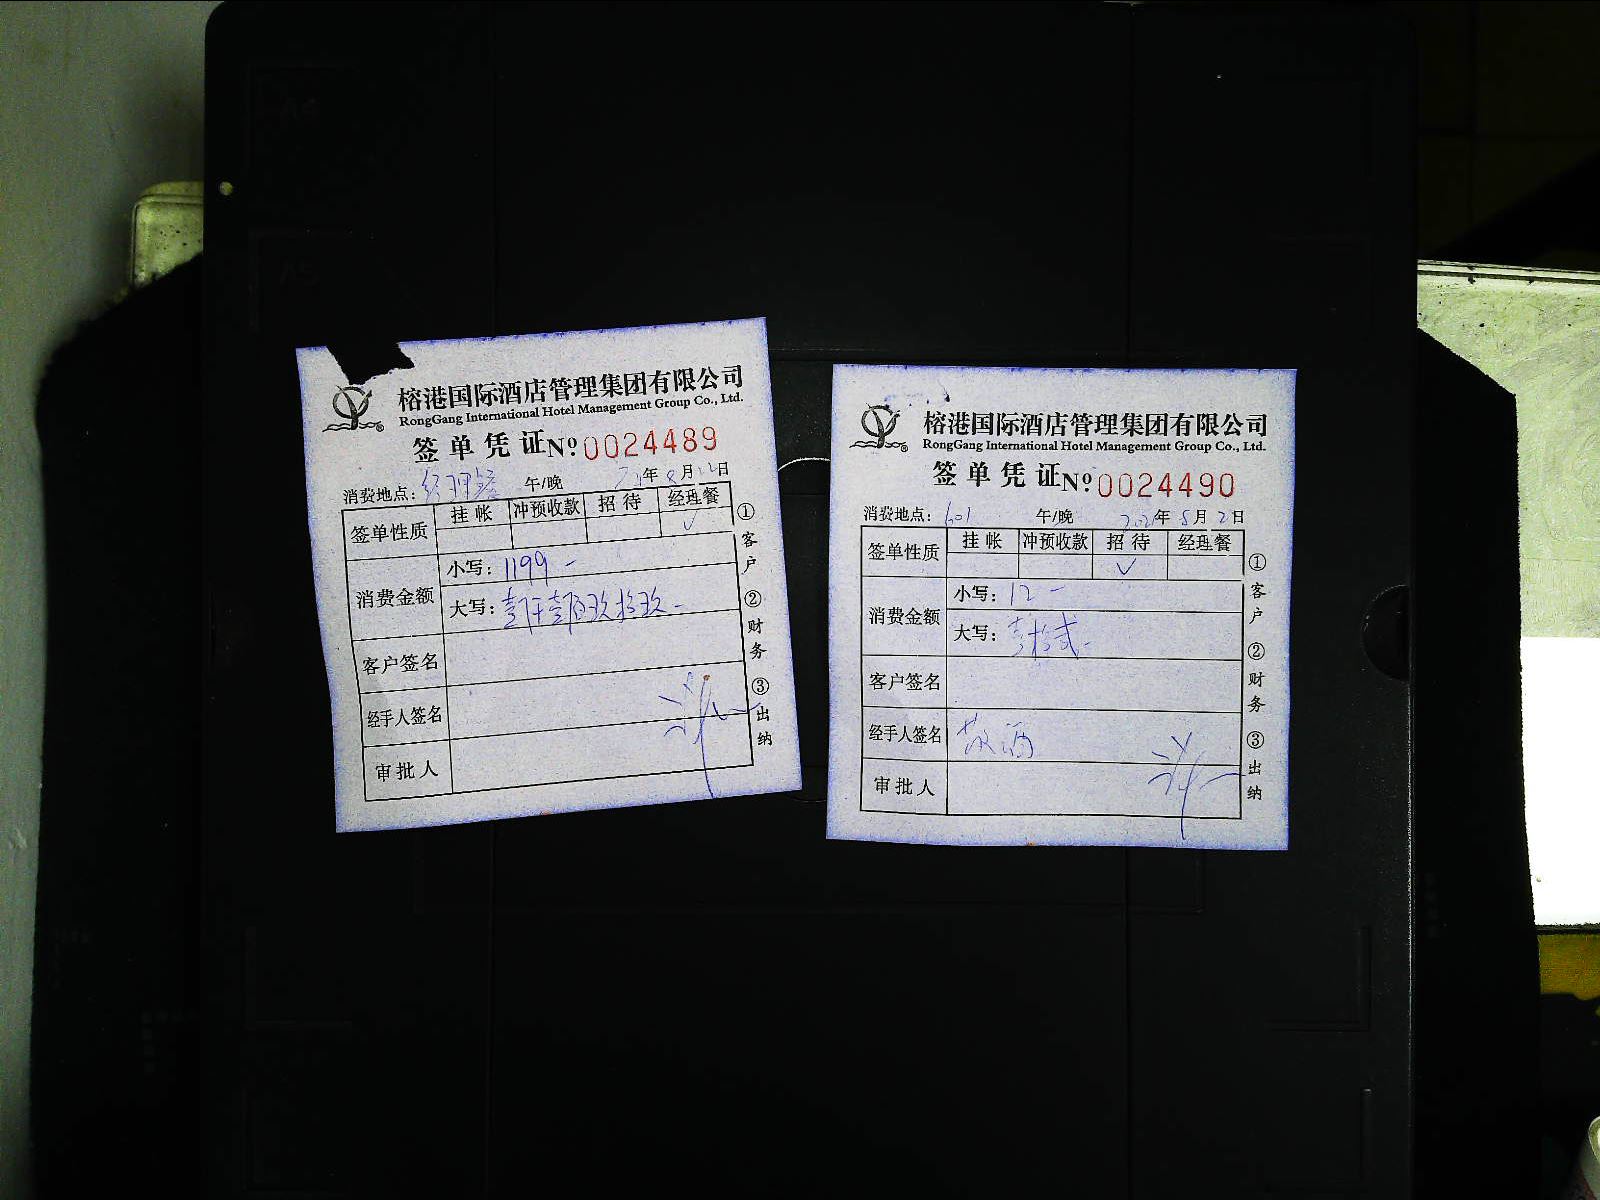 榕港国际酒店管理集团有限公司
RongGang International Hotel Management Group Co., Ltd.
签单凭证 Nº 0024489
消费地点: 经理餐 午/晚 21年8月12日
签单性质 挂帐 冲预收款 招待 经理餐
✓
消费金额 小写: 1199 -
大写: 壹仟壹佰玖拾玖 -
客户签名
经手人签名
审批人
①客户 ②财务 ③出纳
榕港国际酒店管理集团有限公司
RongGang International Hotel Management Group Co., Ltd.
签单凭证 Nº 0024490
消费地点: 601 午/晚 2021年8月2日
签单性质 挂帐 冲预收款 招待 经理餐
✓
消费金额 小写: 12 -
大写: 壹拾贰 -
客户签名
经手人签名
审批人
①客户 ②财务 ③出纳